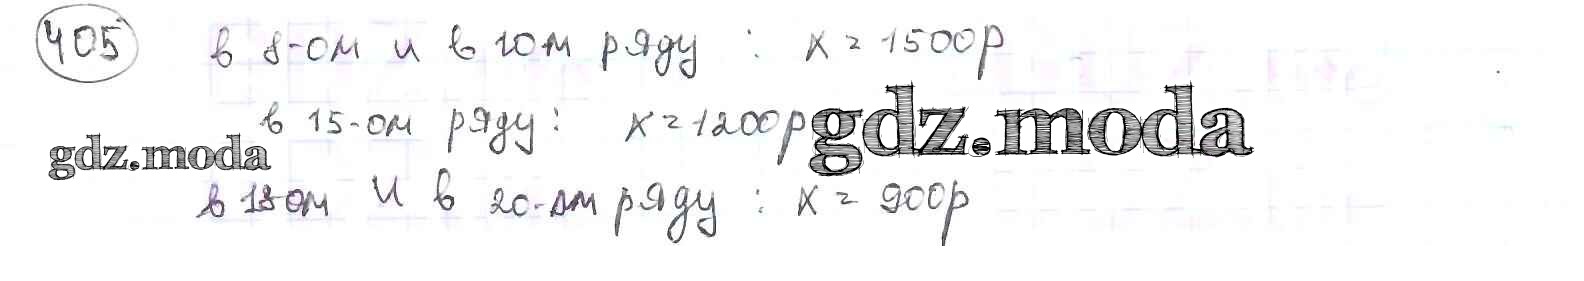 405 в 8-ом и в 10м ряду : x = 1500р
в 15-ом ряду: x = 1200р gdz.moda
gdz.moda
в 18ом и в 20-ом ряду : x = 900р